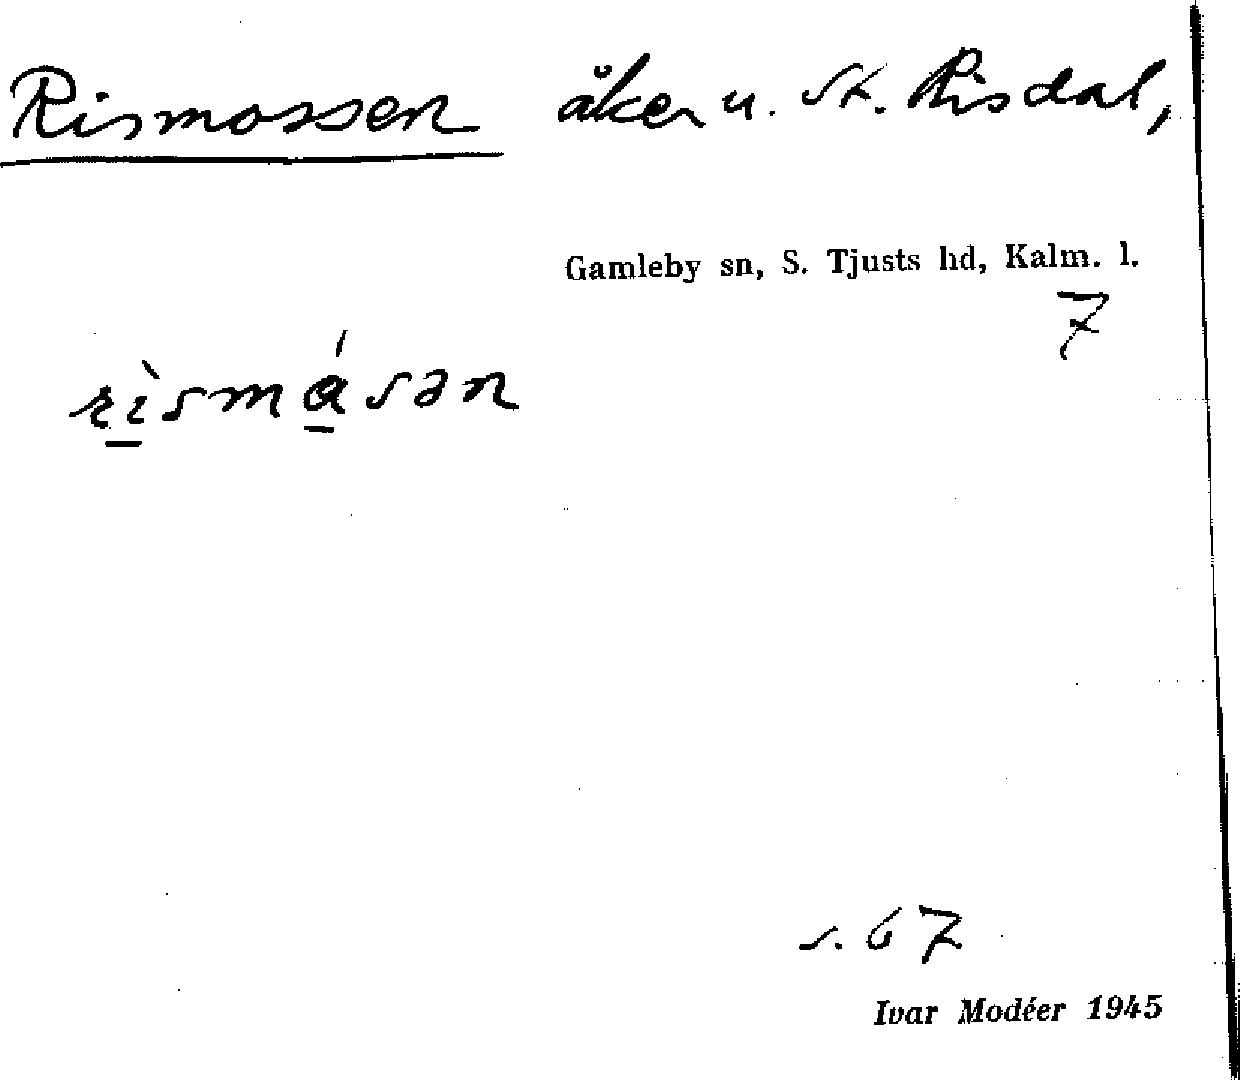 Rismossen åker u. St. Risdal,
Gamleby sn, S. Tjusts hd, Kalm. l.
7
rı̀smásən
s. 67
Ivar Modéer 1945